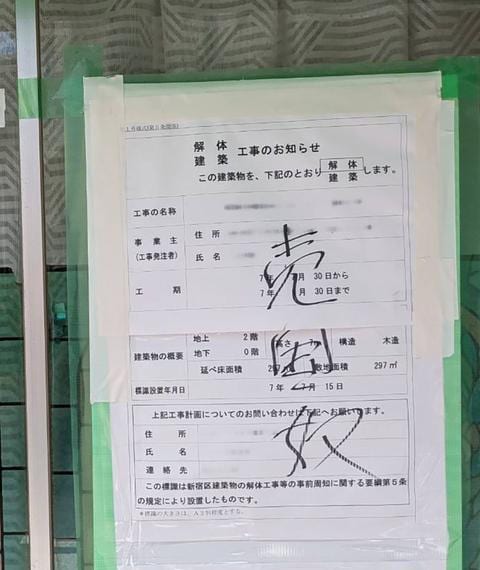 解体
建築 工事のお知らせ
この建築物を、下記のとおり 解体 建築 します。
工事の名称
事業主
(工事発注者)
住所
氏名
工期
7年 月 30日から
7年 月 30日まで
建築物の概要
地上 2階 高さ 構造 木造
地下 0階
延べ床面積 敷地面積 297㎡
標識設置年月日 7年 7月 15日
上記工事計画についてのお問い合わせは下記へお願いします。
住所
氏名
連絡先
この標識は新宿区建築物の解体工事等の事前周知に関する要綱第5条
の規定により設置したものです。
*標識の大きさは、A3判程度とする。
売国奴